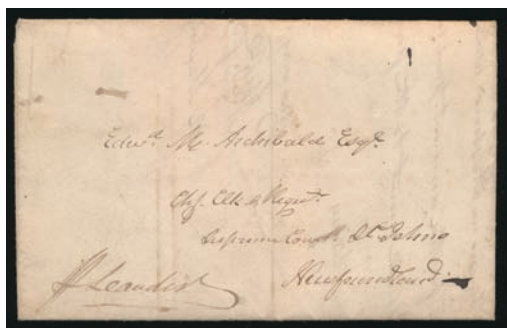 Edwd. M. Archibald Esqr.
Chf. Clk & Regisr.
Supreme Court St. Johns
Newfoundland